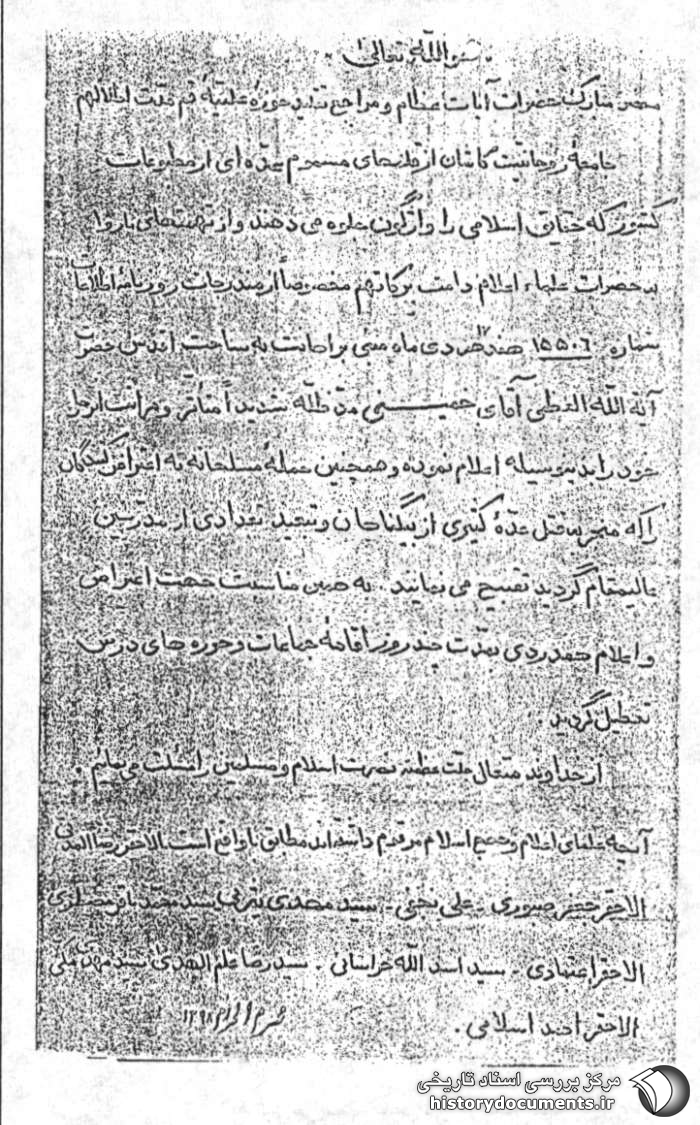 بسم الله تعالی
محضر مبارک حضرات آیات عظام و مراجع تقلید حوزهٔ علمیهٔ قم دامت اظلالهم
جامعهٔ روحانیت کاشان از قلمهای مسموم عده‌ای از مطبوعات
کشور که حقایق اسلامی را واژگون جلوه می دهند و از تهمت‌های ناروا
به حضرات علماء اعلام دامت برکاتهم مخصوصاً از مندرجات روزنامهٔ اطلاعات
شماره ۱۵۵۰۶ هفدهم دی ماه مبنی بر اهانت به ساحت اقدس حضرت
آیة الله العظمی آقای خمینی مد ظله شدیداً متأثر و مراتب انزجار
خود را بدینوسیله اعلام نموده و همچنین حملهٔ مسلحانه به اعتراض کنندگان
را که منجر بقتل عدهٔ کثیری از بیگناهان و تبعید تعدادی از مدرسین
عالیمقام گردید تقبیح می نمایند. به همین مناسبت جهت اعتراض
و اعلام همدردی بمدت چند روز اقامهٔ جماعات و حوزه های درس
تعطیل گردید.
از خداوند متعال جلت عظمته نصرت اسلام و مسلمین را مسئلت می نمایم.
آنچه علمای اعلام و حجج اسلام مرقوم داشته‌اند مطابق با واقع است. الاحقر رضا المدنی
الاحقر جعفر صبوری - علی نجفی - سید مهدی یثربی سید محمد باقر
الاحقر اعتمادی - سید اسد الله خراسانی - سید رضا علم الهدی سید مهدی ملکی
الاحقر احمد اسلامی. محرم الحرام ۱۳۹۸
مرکز بررسی اسناد تاریخی
historydocuments.ir